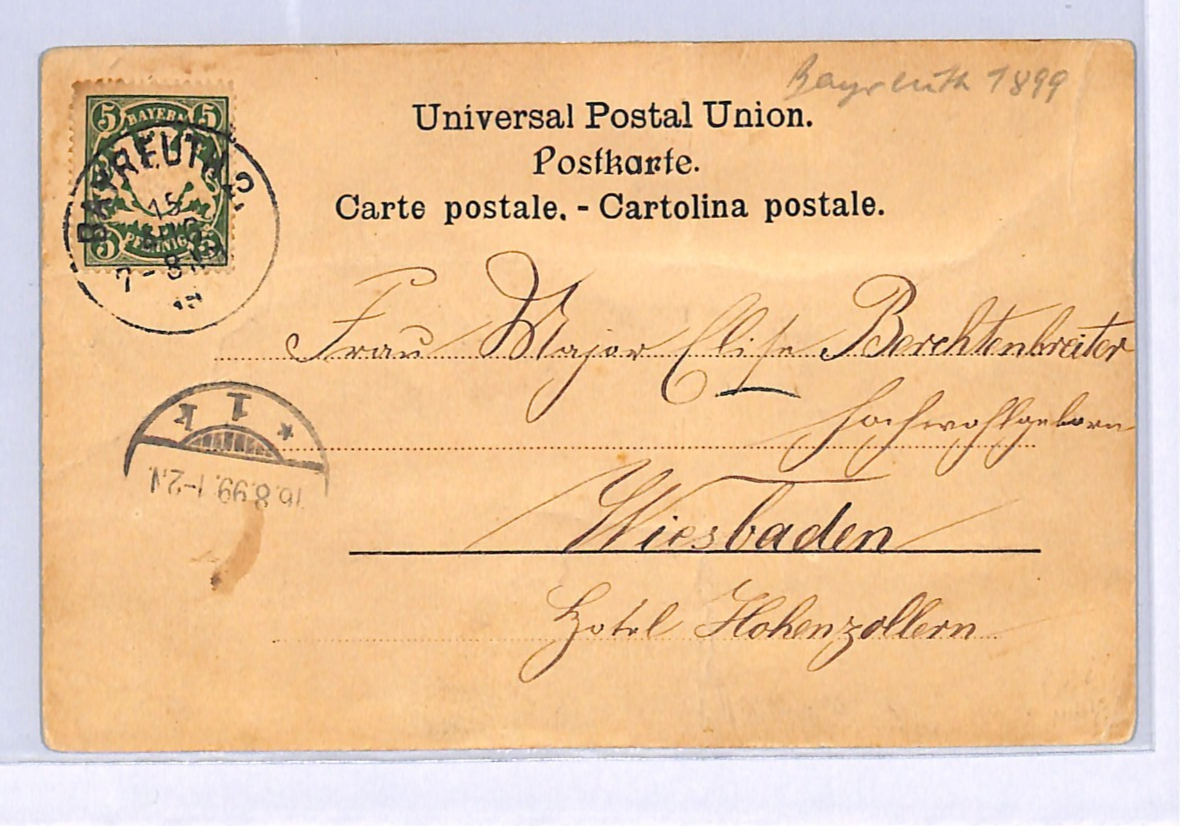 Bayreuth 1899
Universal Postal Union.
Postkarte.
Carte postale. - Cartolina postale.
5 5
BAYERN
PFENNIG
5 5
BAYREUTH 2.
15
AUG
7-8
Frau Major Elise Berchtenbreiter
Hochwohlgeborn
* 1 k
16.8.99.1-2N.
Wiesbaden
Hotel Hohenzollern